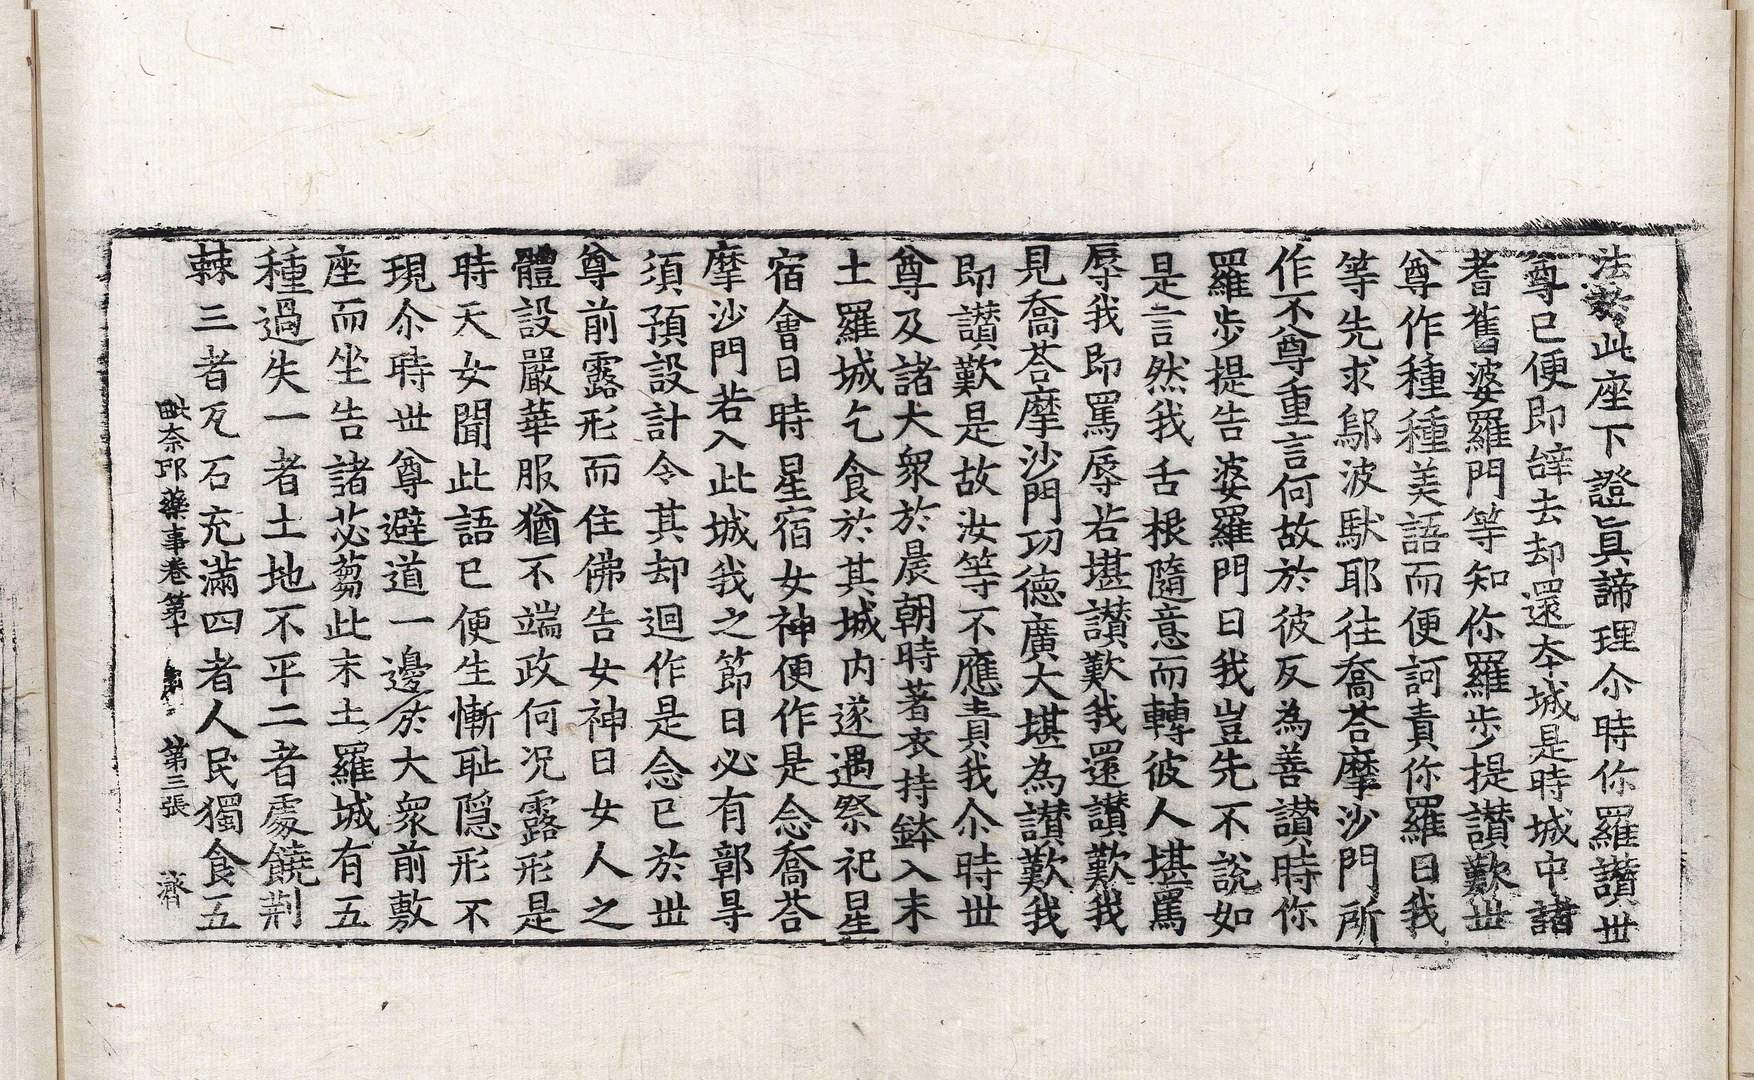 法於此座下證真諦理尒時你羅讃世
尊已便即辝去却還本城是時城中諸
耆舊婆羅門等知你羅步提讃歎世
尊作種種美語而便訶責你羅曰我
等先求鄔波馱耶往喬荅摩沙門所
作不尊重言何故於彼反為善讃時你
羅步提告婆羅門曰我豈先不說如
是言然我舌根隨意而轉彼人堪罵
辱我即罵辱若堪讃歎我還讃歎我
見喬荅摩沙門功德廣大堪為讃歎我
即讃歎是故汝等不應責我尒時世
尊及諸大衆於晨朝時著衣持鉢入末
土羅城乞食於其城内遂遇祭祀星
宿會日時星宿女神便作是念喬荅
摩沙門若入此城我之節日必有鄣㝵
須預設計令其却迴作是念已於世
尊前露形而住佛告女神曰女人之
體設嚴華服猶不端政何况露形是
時天女聞此語已便生慚耻隱形不
現尒時世尊避道一邊於大衆前敷
座而坐告諸苾芻此末土羅城有五
種過失一者土地不平二者處饒荆
棘三者瓦石充滿四者人民獨食五
毗奈耶藥事卷第十 第三張 濟